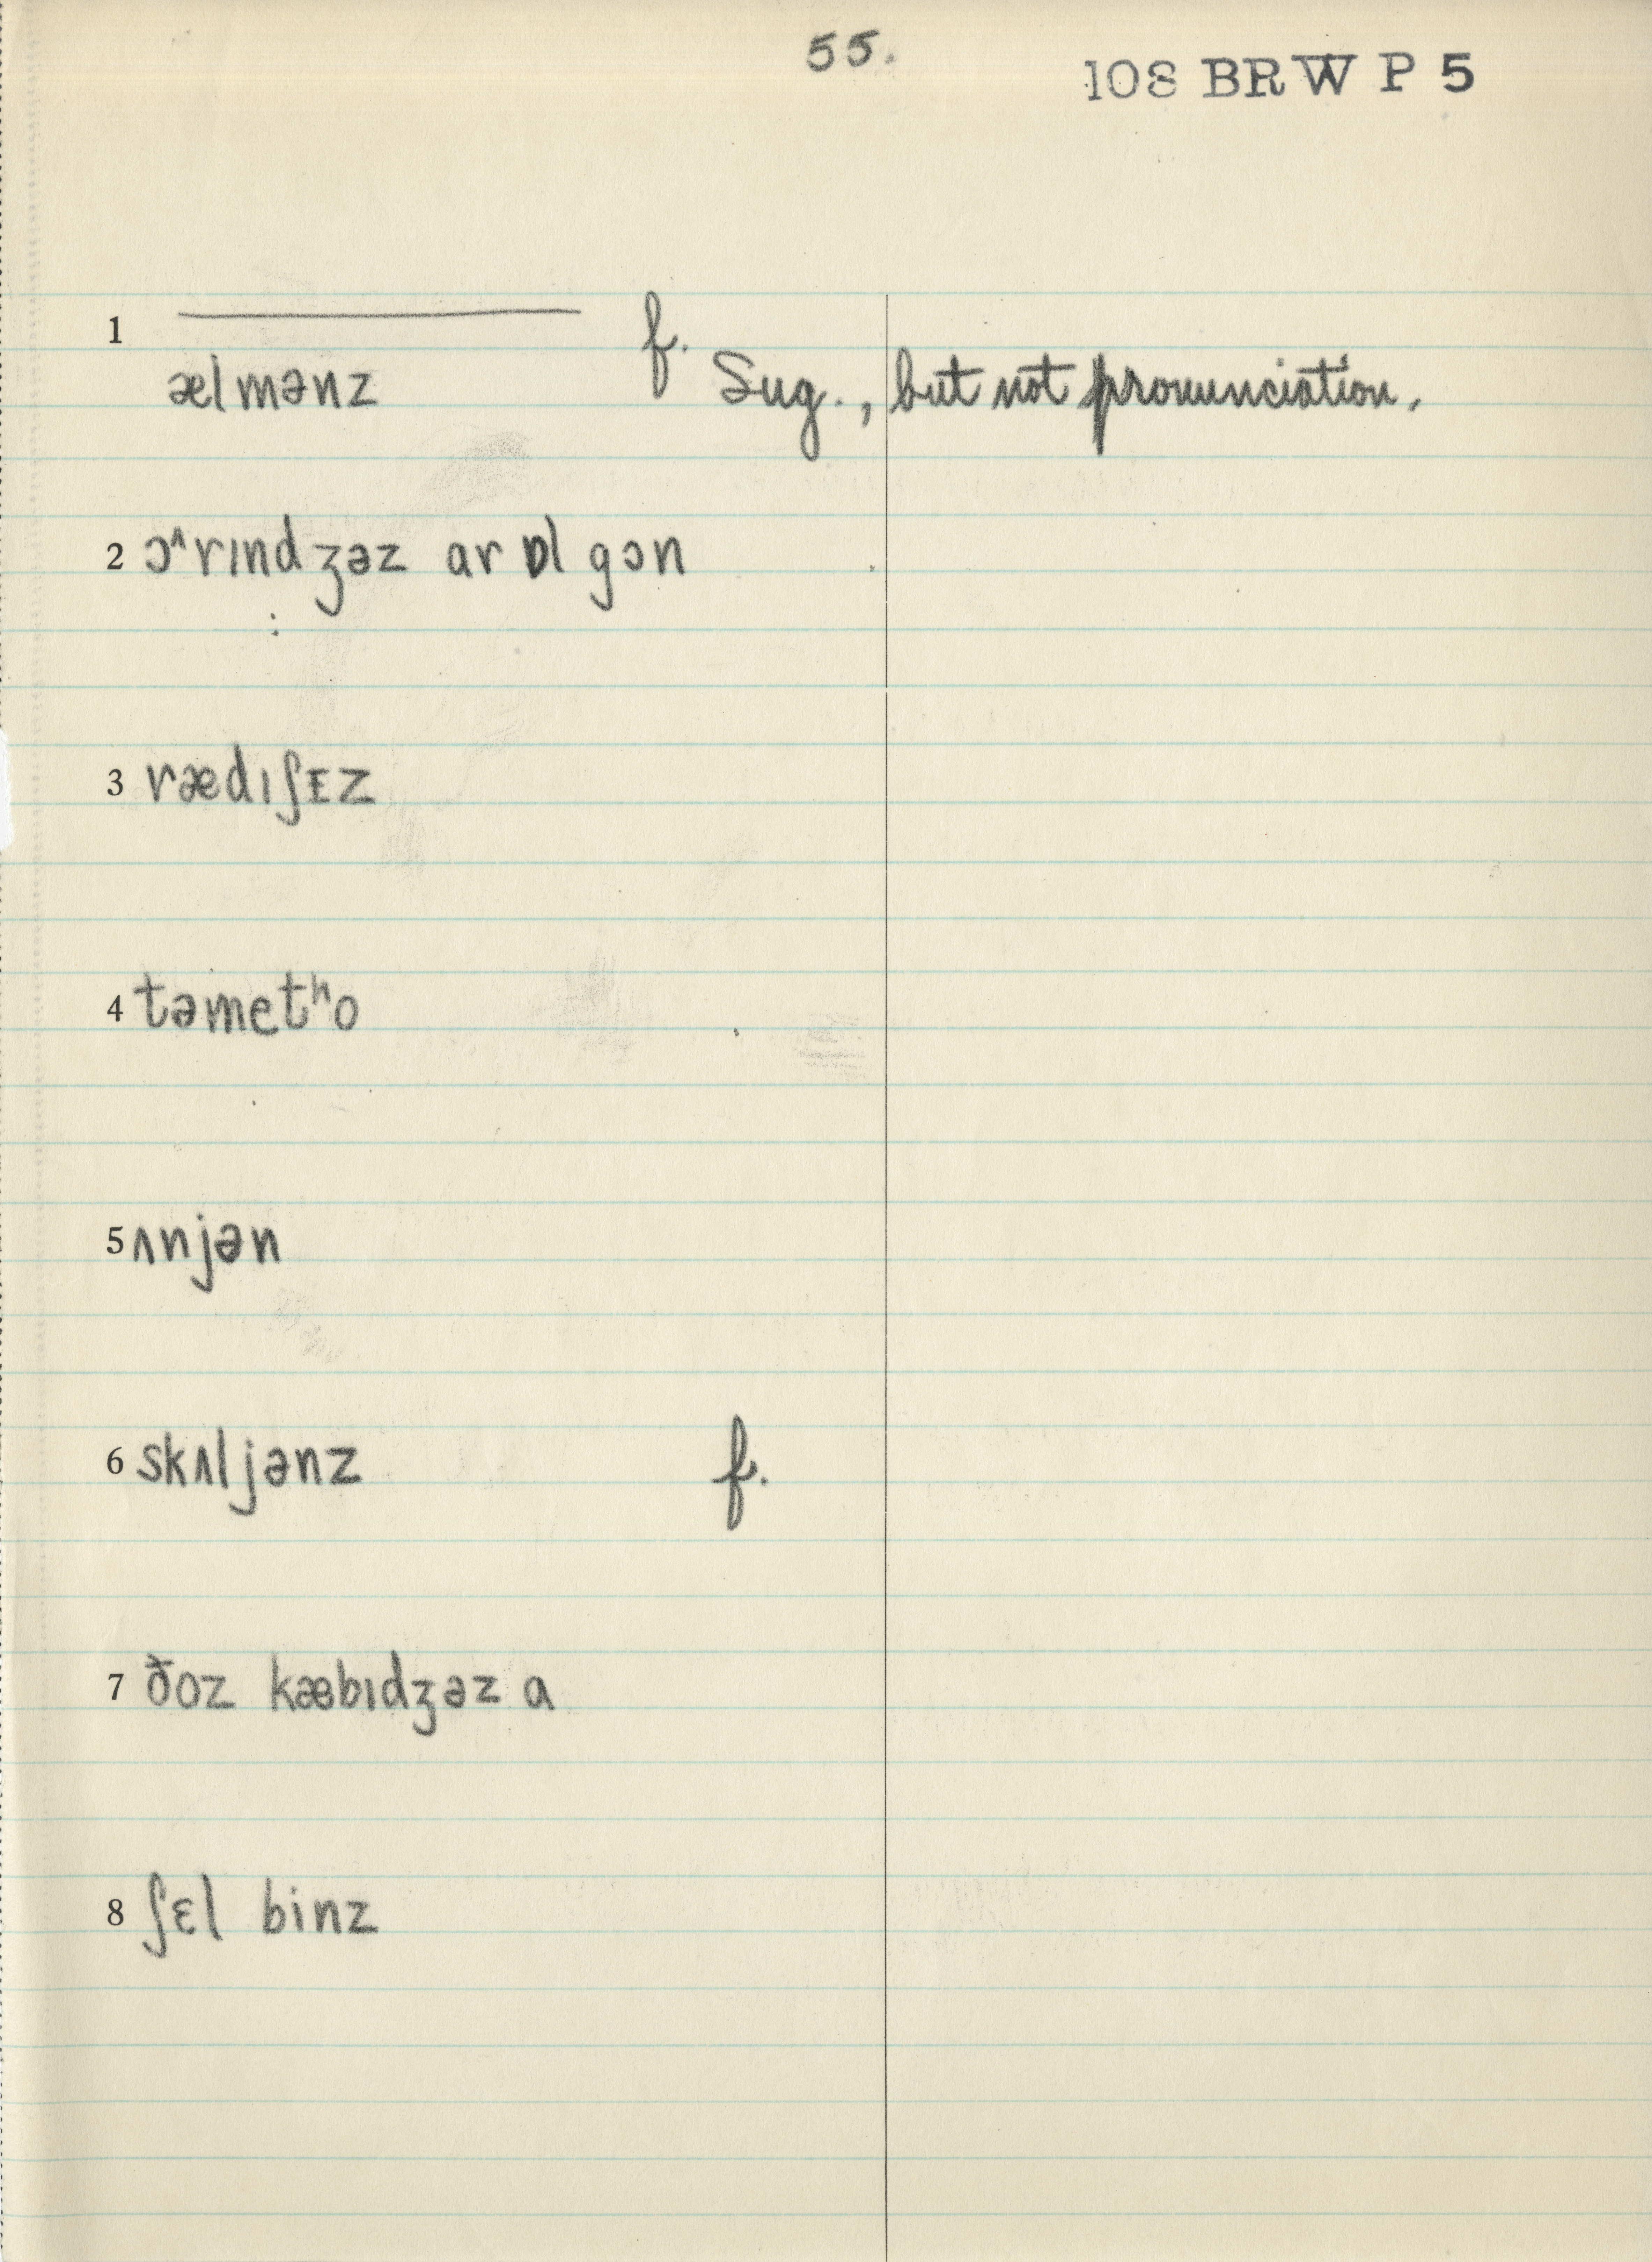 55.
108 BRW P 5
1 ———— f.
ælmənz Sug., but not pronunciation.
2 ɔ^rɪndʒəz ar ɒl gɔn
3 rædɪʃᴇz
4 təmetʰo
5 ʌnjən
6 skʌljənz f.
7 ðoz kæbɪdʒəz a
8 ʃɛl binz